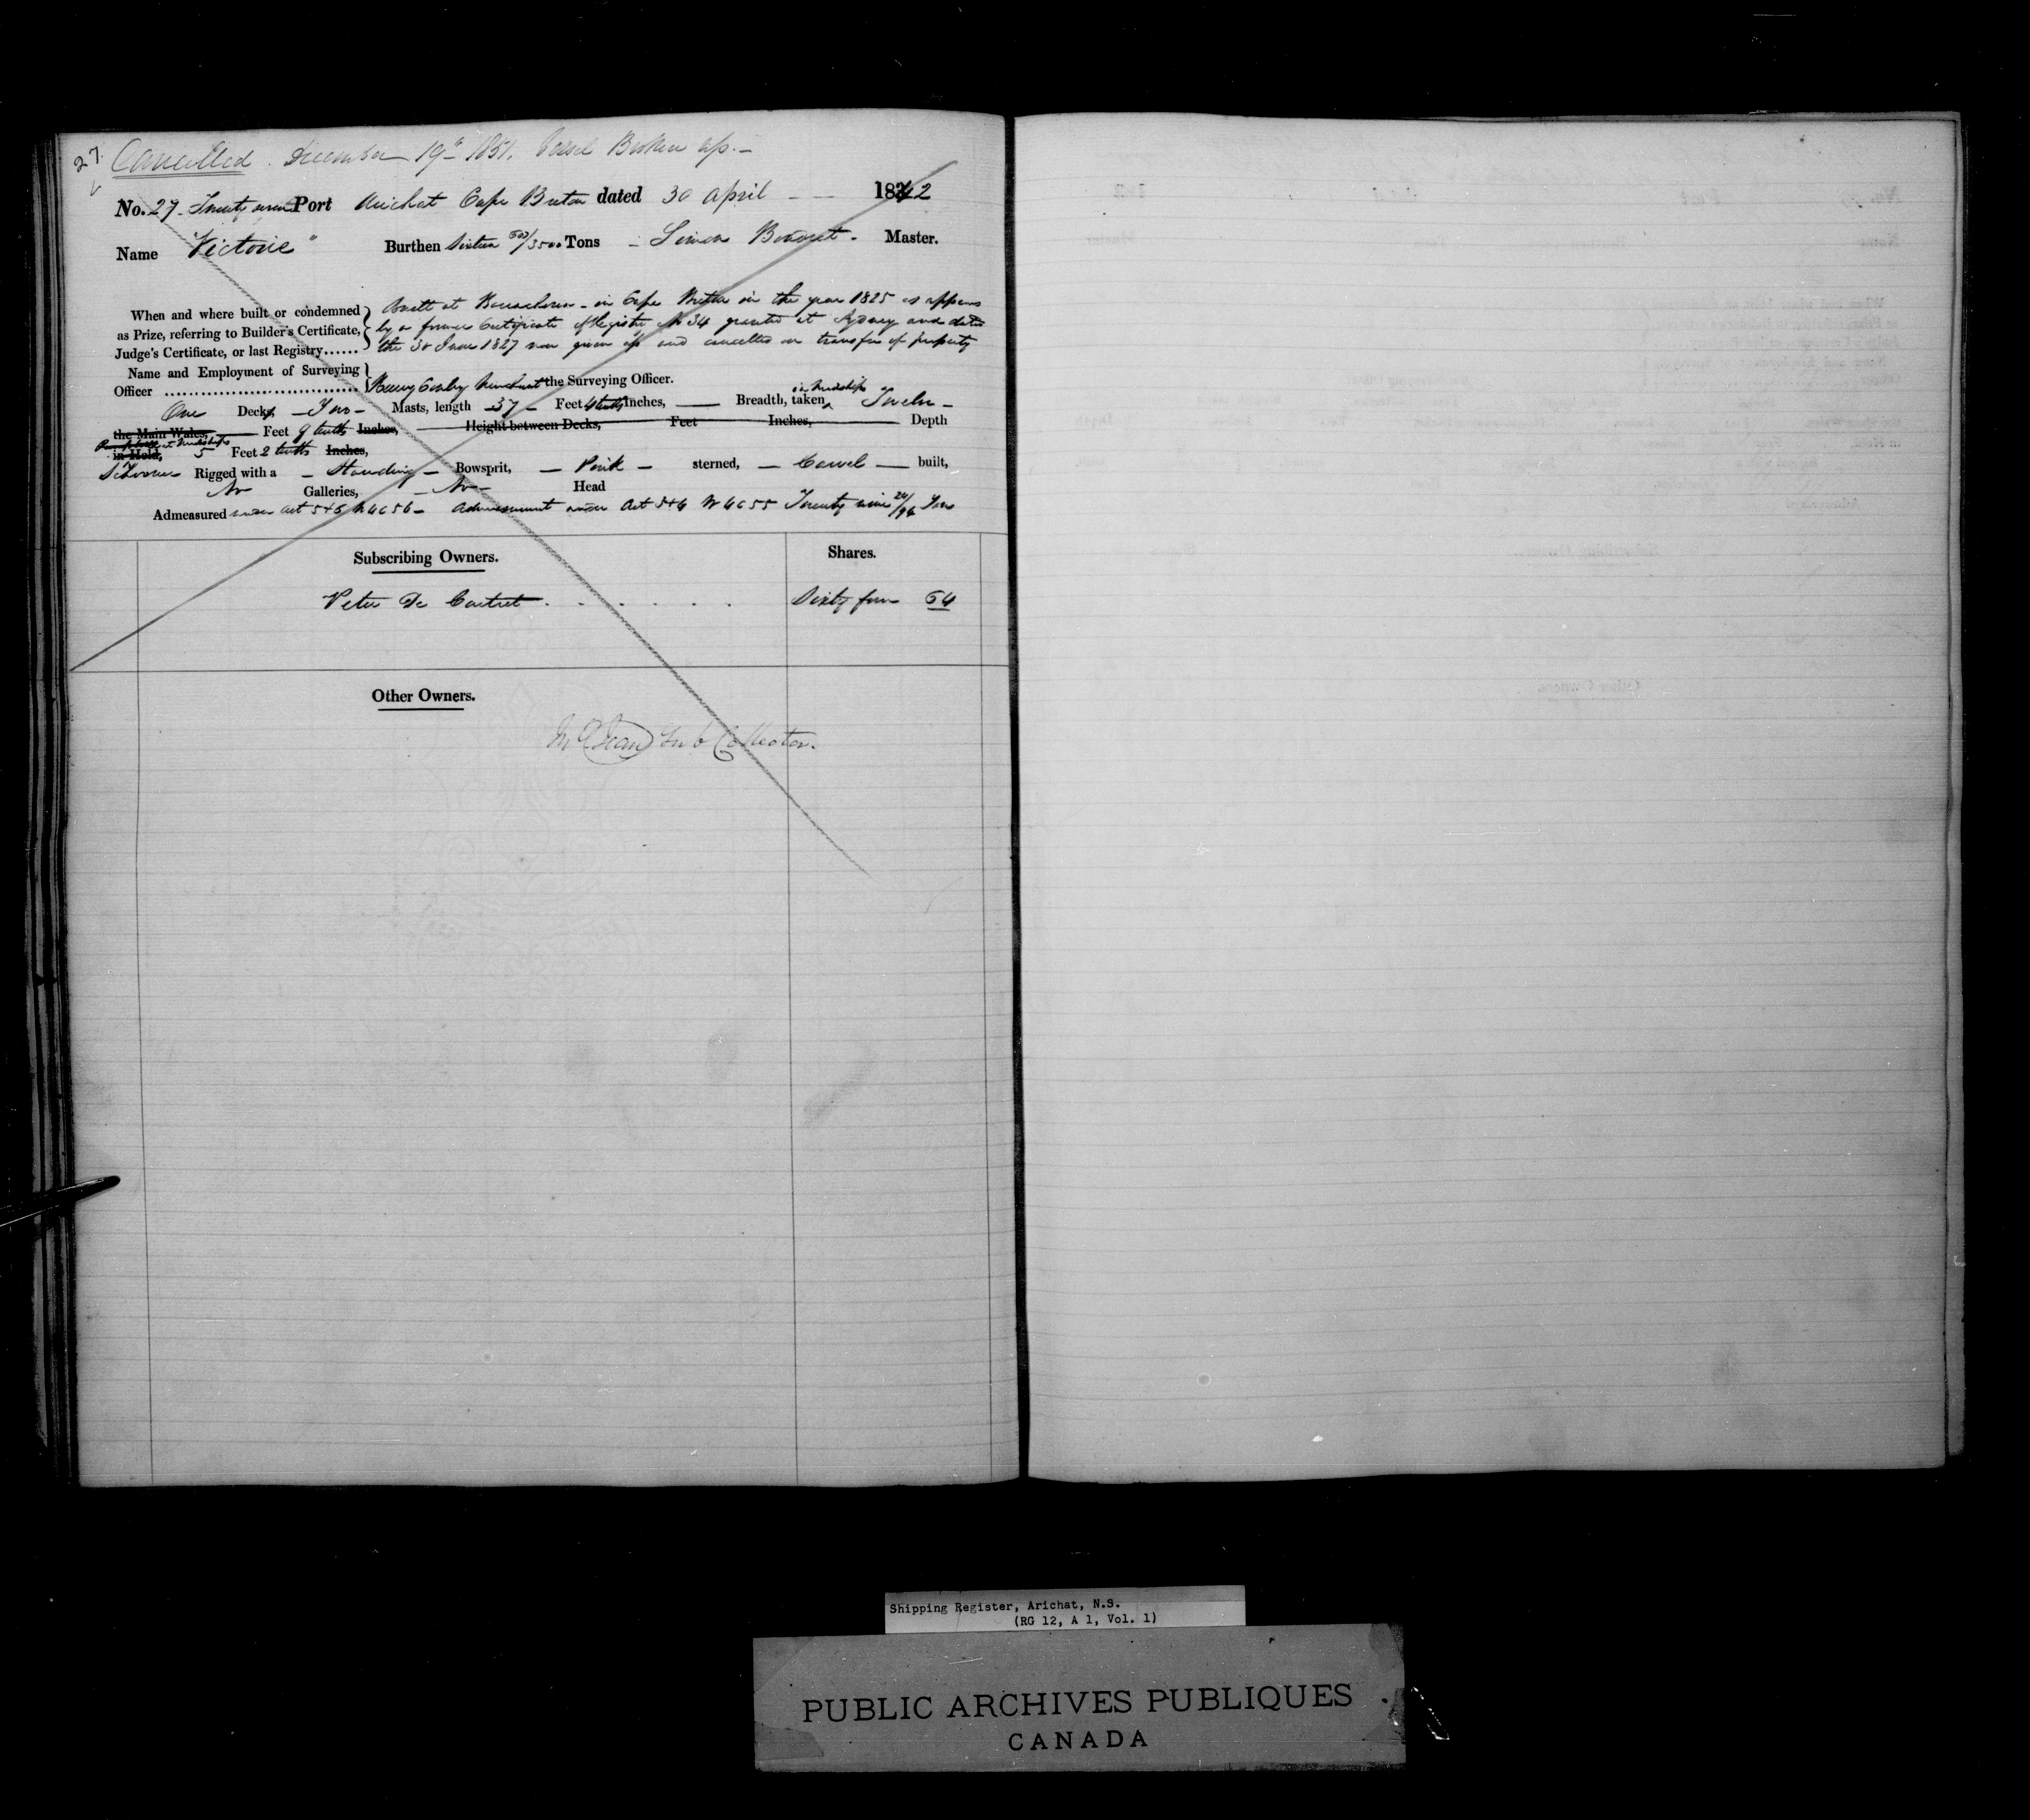 27.
Cancelled. December 19th 1851. Vessel Broken up.
No. 27 Twenty seven Port Arichat Cape Breton dated 30 April 1842
Name "Victorie" Burthen Sixteen /3500 Tons Simon Master.
When and where built or condemned
as Prize, referring to Builder's Certificate,
Judge's Certificate, or last Registry......
built at in Cape Breton in the year 1825 as appears
by a former Certificate of Registry No 34 granted at Sydney and dated
the 30 June 1827 now given up and cancelled on transfer of property
Name and Employment of Surveying
Officer ................................ Henry merchant the Surveying Officer.
One Deck, Two Masts, length 37 Feet 4 tenths Inches, Breadth, taken in midships Twelve
the Main Wales, Feet 9 tenths Inches, Height between Decks, Feet Inches, Depth
in Hold, at midships 5 Feet 2 tenths Inches,
Schooner Rigged with a Standing Bowsprit, Pink sterned, Carvel built,
No Galleries, No Head
Admeasured under Act 5+6 W 4 C 56 Admeasurement under Act 3+4 W 4 C 55 Twenty nine 24/94 Tons
Subscribing Owners. Shares.
Peter De Cartret Sixty four 64
Other Owners.
Jean Sub Collector.
Shipping Register, Arichat, N.S.
(RG 12, A 1, Vol. 1)
PUBLIC ARCHIVES PUBLIQUES
CANADA